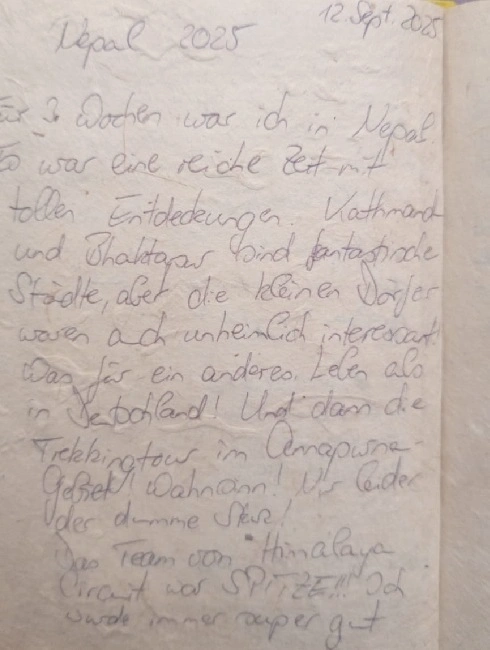 12. Sept. 2025
Nepal 2025
Für 3 Wochen war ich in Nepal.
Es war eine reiche Zeit mit
tollen Entdeckungen. Kathmand
und Bhaktapur sind fantastische
Städte, aber die kleinen Dörfer
waren auch unheimlich interessant!
Was für ein anderes Leben als
in Deutschland! Und dann die
Trekkingtour im Annapurna-
Gebiet! Wahnsinn! Nur leider
der dumme Sturz!
Das Team von Himalaya
Circuit war SPITZE!!! Ich
wurde immer super gut